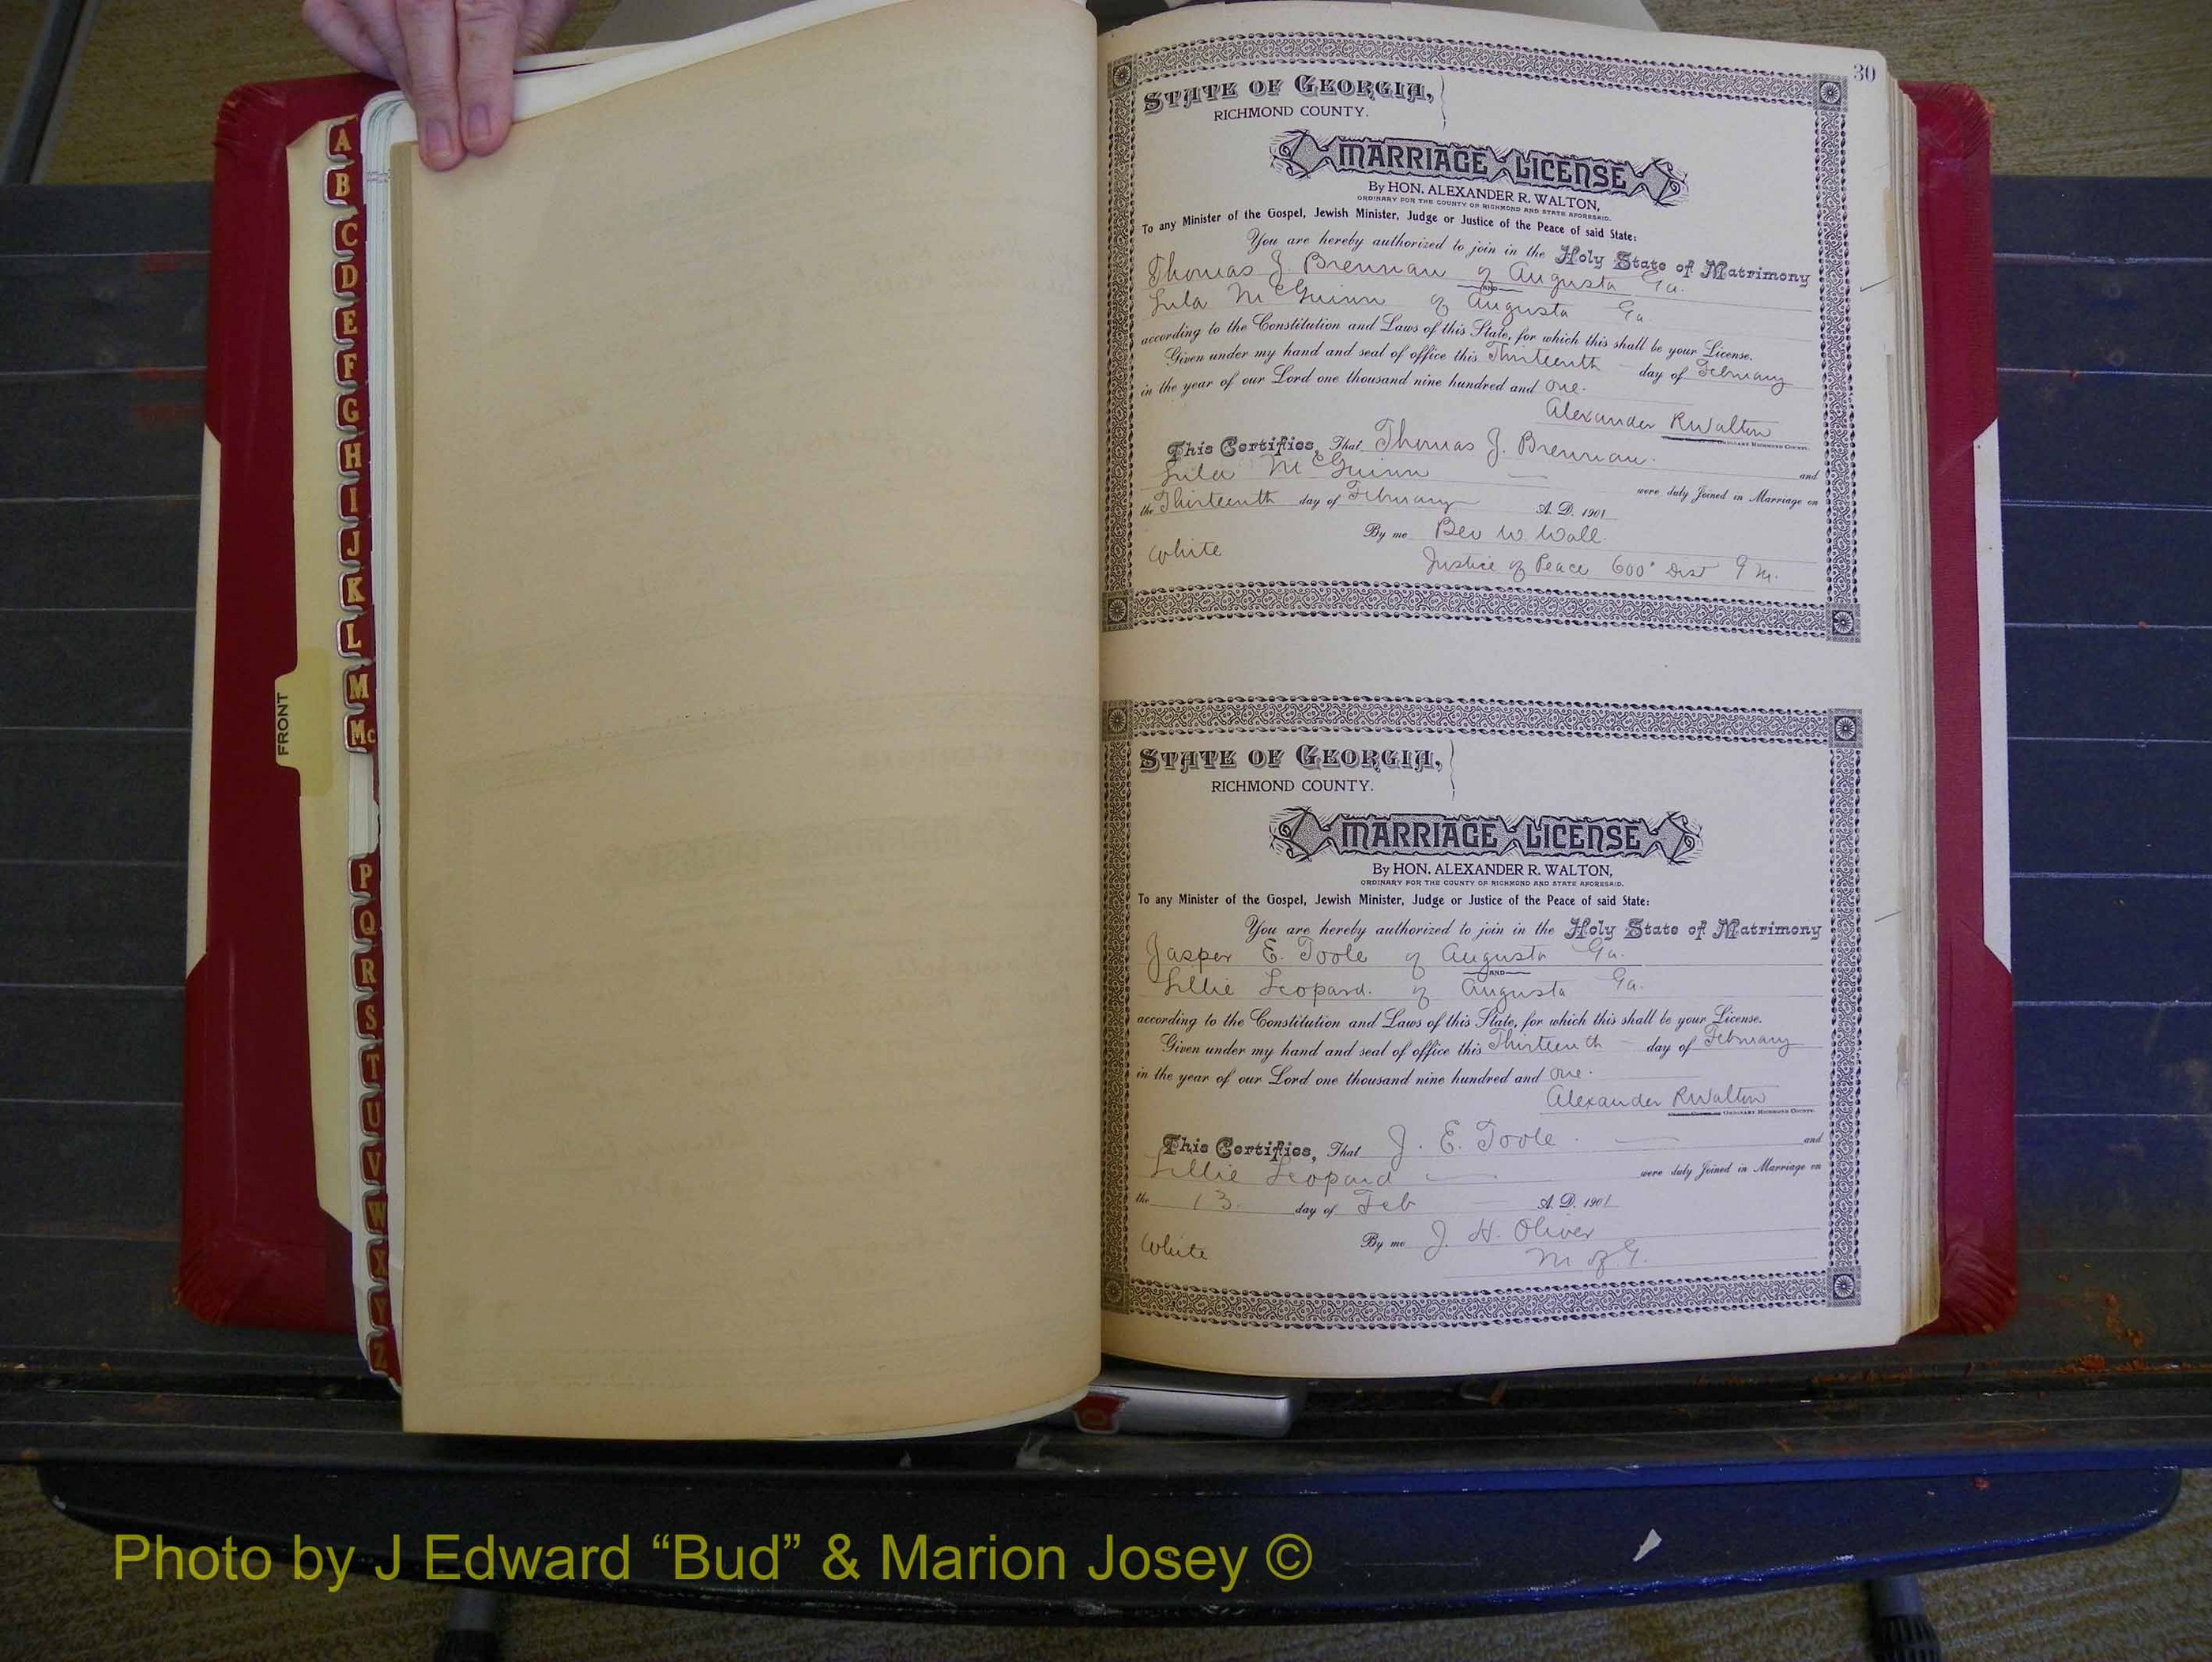 A
B
C
D
E
F
G
H
I
J
K
L
M
Mc
P
Q
R
S
T
U
V
W
X
Y
Z
FRONT
30
STATE OF GEORGIA,
RICHMOND COUNTY.
MARRIAGE LICENSE
By HON. ALEXANDER R. WALTON,
ORDINARY FOR THE COUNTY OF RICHMOND AND STATE AFORESAID.
To any Minister of the Gospel, Jewish Minister, Judge or Justice of the Peace of said State:
You are hereby authorized to join in the Holy State of Matrimony
Thomas J. Brennan of Augusta Ga.
AND
Lula McGuinn of Augusta Ga.
according to the Constitution and Laws of this State, for which this shall be your License.
Given under my hand and seal of office this Thirteenth day of February
in the year of our Lord one thousand nine hundred and one.
Alexander R Walton
ORDINARY RICHMOND COUNTY.
This Certifies, That Thomas J. Brennan. and
Lula McGuinn were duly Joined in Marriage on
the Thirteenth day of February A. D. 1901
By me Ben W. Wall.
White
Justice of Peace 600" Dist G M.
STATE OF GEORGIA,
RICHMOND COUNTY.
MARRIAGE LICENSE
By HON. ALEXANDER R. WALTON,
ORDINARY FOR THE COUNTY OF RICHMOND AND STATE AFORESAID.
To any Minister of the Gospel, Jewish Minister, Judge or Justice of the Peace of said State:
You are hereby authorized to join in the Holy State of Matrimony
Jasper E. Toole of Augusta Ga.
AND
Lillie Leopard. of Augusta Ga.
according to the Constitution and Laws of this State, for which this shall be your License.
Given under my hand and seal of office this Thirteenth day of February
in the year of our Lord one thousand nine hundred and one.
Alexander R Walton
ORDINARY RICHMOND COUNTY.
This Certifies, That J. E. Toole. and
Lillie Leopard were duly Joined in Marriage on
the 13. day of Feb A. D. 1901
By me J. H. Oliver
White
M of G.
Photo by J Edward “Bud” & Marion Josey ©